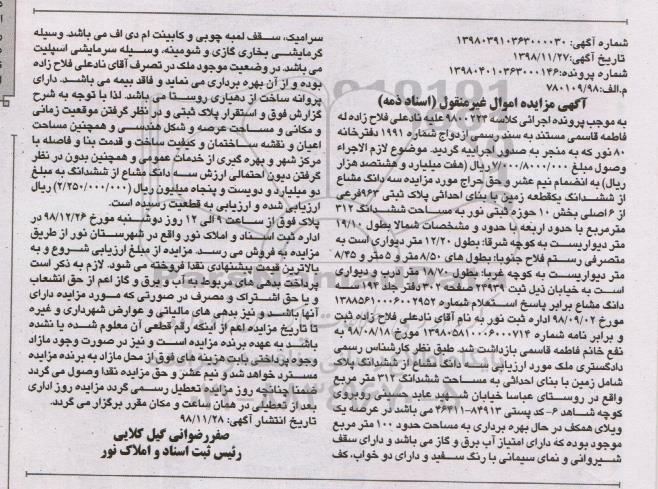 شماره آگهی: ۱۳۹۸۰۳۹۱۰۳۶۳۰۰۰۰۳۰
تاریخ آگهی: ۱۳۹۸/۱۱/۲۷
شماره پرونده: ۱۳۹۸۰۴۰۱۰۳۶۳۰۰۰۱۴۶
م.الف: ۷۸۰۱۰۹/۹۸
آگهی مزایده اموال غیرمنقول (اسناد ذمه)
به موجب پرونده اجرائی کلاسه ۹۸۰۰۲۲۴ علیه نادعلی فلاح زاده له
فاطمه قاسمی مستند به سند رسمی ازدواج شماره ۱۹۹۱ دفترخانه
۸۰ نور که به منجر به صدور اجراییه گردید. موضوع لازم الاجراء
وصول مبلغ ۷/۰۰۰/۸۰۰/۰۰۰ ریال (هفت میلیارد و هشتصد هزار
ریال) به انضمام نیم عشر و حق حراج مورد مزایده سه دانگ مشاع
از ششدانگ یکقطعه زمین با بنای احداثی پلاک ثبتی ۹۶۳ فرعی
از ۶ اصلی بخش ۱۰ حوزه ثبتی نور به مساحت ششدانگ ۳۱۲
مترمربع با حدود اربعه با حدود و مشخصات شمالا بطول ۱۹/۱۰
متر دیواریست به کوچه شرقا: بطول ۱۲/۲۰ متر دیواری است به
متصرفی رستم فلاح جنوبا: بطول های ۸/۵۰ متر و ۵ متر و ۸/۴۵
متر دیواریست به کوچه غربا: بطول ۱۸/۷۰ متر درب و دیواری
است به خیابان ذیل ثبت ۲۴۹۳۹ صفحه ۳۰۲ دفتر جلد ۱۹۴ سه
دانگ مشاع برابر پاسخ استعلام شماره ۱۳۸۸۵۶۱۰۰۰۶۰۰۲۹۵۲
مورخ ۹۸/۰۹/۰۲ اداره ثبت نور به نام آقای نادعلی فلاح زاده ثبت
و برابر نامه شماره ۱۳۹۸۰۵۸۱۰۰۰۶۰۰۰۷۱۴ مورخ ۹۸/۰۸/۱۸ به
نفع خانم فاطمه قاسمی بازداشت شد. طبق نظر کارشناس رسمی
دادگستری ملک مورد ارزیابی سه دانگ مشاع از ششدانگ پلاک
شامل زمین با بنای احداثی به مساحت ششدانگ ۳۱۲ متر مربع
واقع در روستای عباسا خیابان شهید عابد حسینی روبروی
کوچه شاهد ۶- کد پستی ۸۴۹۱۳-۴۶۴۱۱ می باشد در عرصه یک
ویلای همکف در حال بهره برداری به مساحت حدود ۱۰۰ متر مربع
موجود بوده که دارای امتیاز آب برق و گاز می باشد و دارای سقف
شیروانی و نمای سیمانی با رنگ سفید و دارای دو خواب، کف
سرامیک، سقف لمبه چوبی و کابینت ام دی اف می باشد. وسیله
گرمایشی بخاری گازی و شومینه، وسیله سرمایشی اسپلیت
می باشد. در وضعیت موجود ملک در تصرف آقای نادعلی فلاح زاده
بوده و از آن بهره برداری می نماید و فاقد بیمه می باشد. دارای
پروانه ساخت از دهیاری روستا می باشد. لذا با توجه به شرح
گزارش فوق و استقرار پلاک ثبتی و در نظر گرفتن موقعیت زمانی
و مکانی و مساحت عرصه و شکل هندسی و همچنین مساحت
اعیان و نقشه ساختمان و کیفیت ساخت و قدمت بنا و فاصله با
مرکز شهر و بهره گیری از خدمات عمومی و همچنین بدون در نظر
گرفتن دیون احتمالی ارزش سه دانگ مشاع از ششدانگ به مبلغ
دو میلیارد و دویست و پنجاه میلیون ریال (۲/۲۵۰/۰۰۰/۰۰۰) ریال
ارزیابی شده و ارزیابی به قطعیت رسیده است.
پلاک فوق از ساعت ۹ الی ۱۲ روز دوشنبه مورخ ۹۸/۱۲/۲۶ در
اداره ثبت اسناد و املاک نور واقع در شهرستان نور از طریق
مزایده به فروش می رسد. مزایده از مبلغ ارزیابی شروع و به
بالاترین قیمت پیشنهادی نقدا فروخته می شود. لازم به ذکر است
پرداخت بدهی های مربوط به آب و برق و گاز اعم از حق انشعاب
و یا حق اشتراک و مصرف در صورتی که مورد مزایده دارای
آنها باشد و نیز بدهی های مالیاتی و عوارض شهرداری و غیره
تا تاریخ مزایده اعم از اینکه رقم قطعی آن معلوم شده یا نشده
باشد به عهده برنده مزایده است و نیز در صورت وجود مازاد
وجوه پرداختی بابت هزینه های فوق از محل مازاد به برنده مزایده
مسترد خواهد شد و نیم عشر و حق مزایده نقدا وصول می گردد
ضمنا چنانچه روز مزایده تعطیل رسمی گردد مزایده روز اداری
بعد از تعطیلی در همان ساعت و مکان مقرر برگزار می گردد.
تاریخ انتشار آگهی: ۹۸/۱۱/۲۸
صفر رضوانی گیل کلایی
رئیس ثبت اسناد و املاک نور